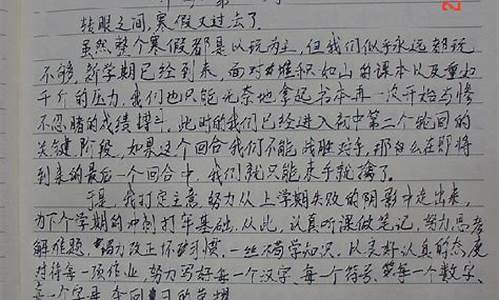 转眼之间,寒假又过去了。
虽然整个寒假都是以玩为主,但我们似乎永远都玩
不够,新学期已经到来,面对堆积如山的课本以及重如
千斤的压力,我们也只能无奈地拿起书本再一次开始与惨
不忍睹的成绩搏斗,此时的我们已经进入初中第二个轮回的
关键阶段,如果这个回合我们不能战胜对手,那么在即将
到来的最后一个回合中,我们就只能束手就擒了。
于是,我打定主意努力从上学期失败的阴影中走出来,
为下个学期的冲刺打牢基础,从此,认真听课做笔记,努力思考
解难题,努力改正坏习惯,一丝不苟学知识。以良好认真的态度
对待每一项作业,努力写好每一个汉字、每一个符号、每一个数字、